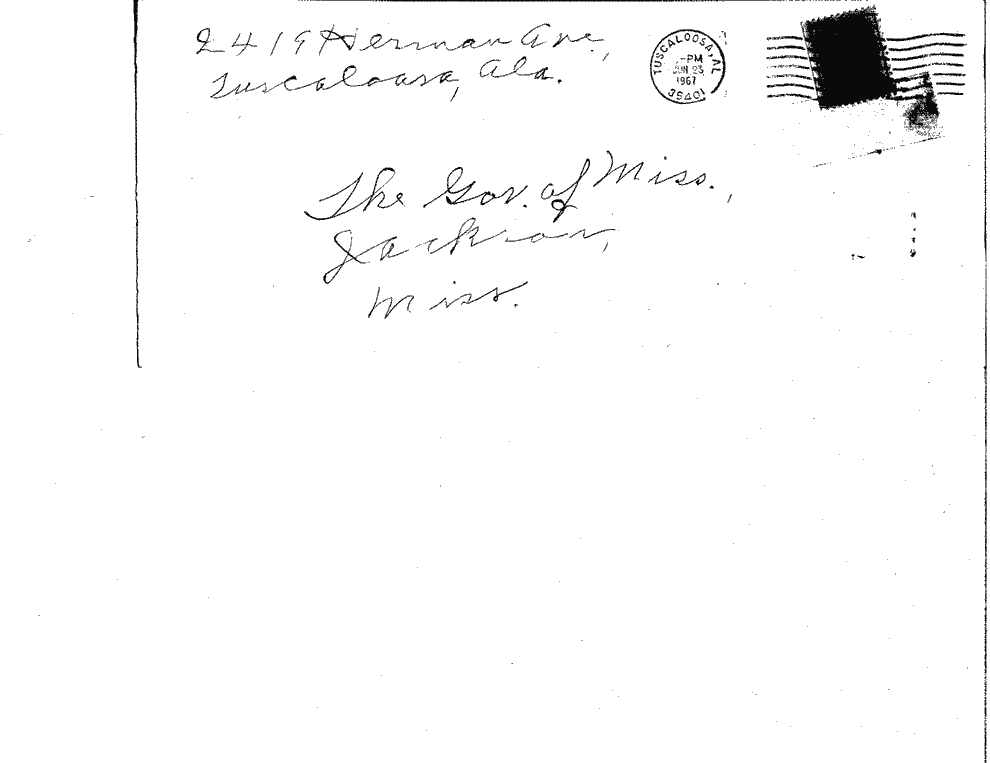 2419 Herman Ave.,
Tuscaloosa, Ala.
TUSCALOOSA, AL
-PM
JUN 23
1967
35401
The Gov. of Miss.,
Jackson,
Miss.